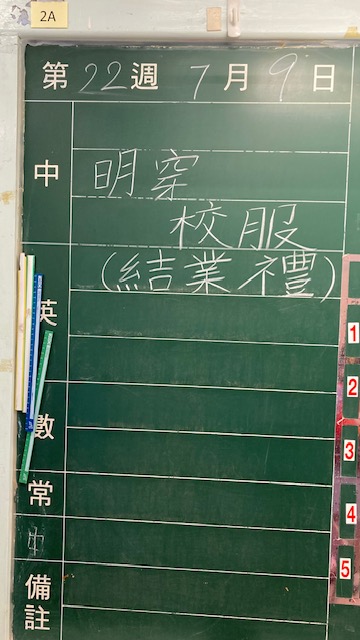 2A
第22週 7月9日
中
明穿
校服
(結業禮)
英
數
常
中
備註
1
2
3
4
5